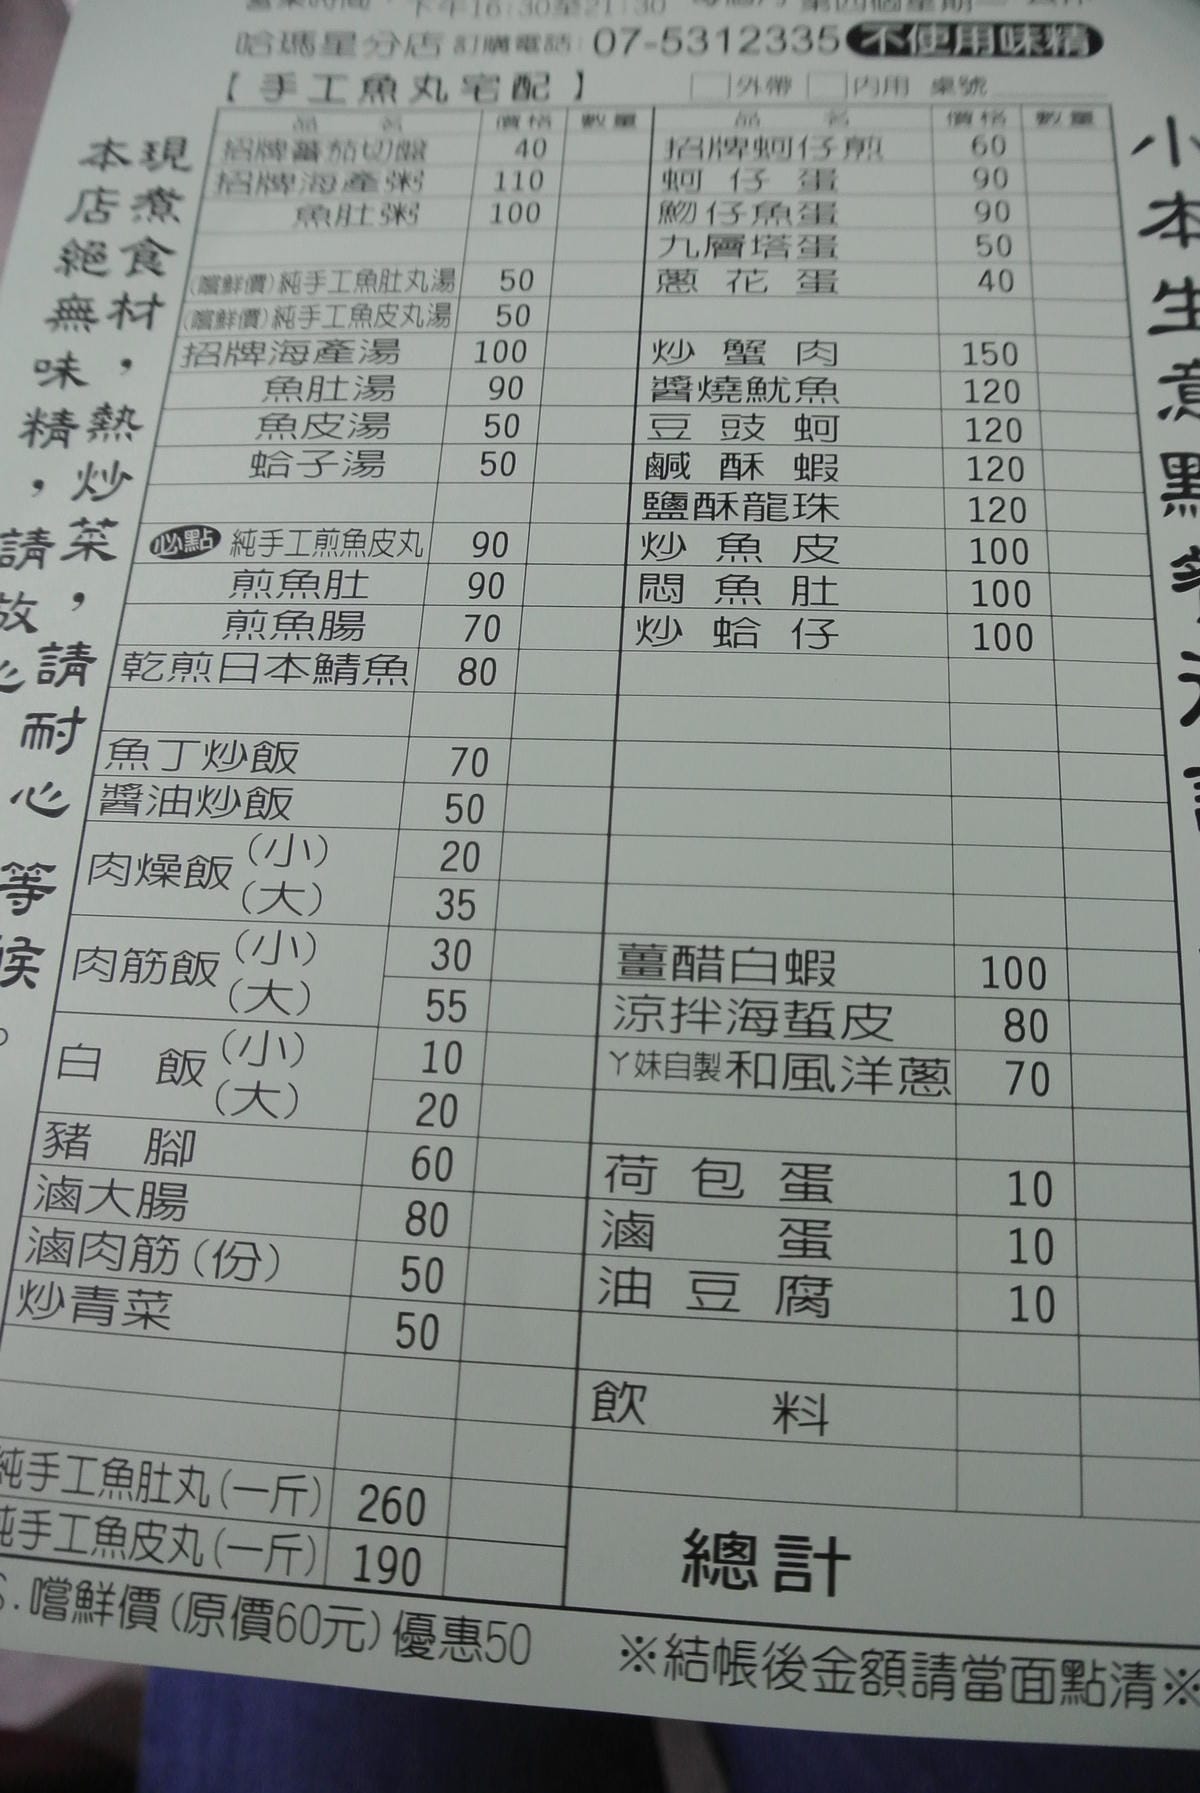 下午16:30至21:30
哈瑪星分店 訂購電話: 07-5312335 不使用味精
【手工魚丸宅配】 □外帶 □內用 桌號
品 名 價格 數量
招牌蕃茄切盤 40
招牌海產粥 110
魚肚粥 100
(嚐鮮價)純手工魚肚丸湯 50
(嚐鮮價)純手工魚皮丸湯 50
招牌海產湯 100
魚肚湯 90
魚皮湯 50
蛤子湯 50
必點 純手工煎魚皮丸 90
煎魚肚 90
煎魚腸 70
乾煎日本鯖魚 80
魚丁炒飯 70
醬油炒飯 50
肉燥飯 (小) 20
(大) 35
肉筋飯 (小) 30
(大) 55
白 飯 (小) 10
(大) 20
豬 腳 60
滷大腸 80
滷肉筋(份) 50
炒青菜 50
純手工魚肚丸(一斤) 260
純手工魚皮丸(一斤) 190
品 名 價格 數量
招牌蚵仔煎 60
蚵仔蛋 90
魩仔魚蛋 90
九層塔蛋 50
蔥花蛋 40
炒蟹肉 150
醬燒魷魚 120
豆豉蚵 120
鹹酥蝦 120
鹽酥龍珠 120
炒魚皮 100
悶魚肚 100
炒蛤仔 100
薑醋白蝦 100
涼拌海蜇皮 80
丫妹自製和風洋蔥 70
荷包蛋 10
滷 蛋 10
油豆腐 10
飲 料
總計
S.嚐鮮價(原價60元)優惠50 ※結帳後金額請當面點清※
現煮食材，熱炒菜，請耐心 等候。
本店絕無味精，請放心
小本生意點